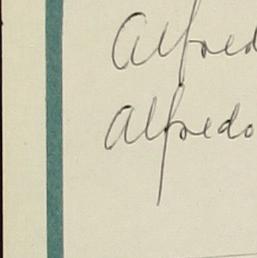 Alfred
Alfredo